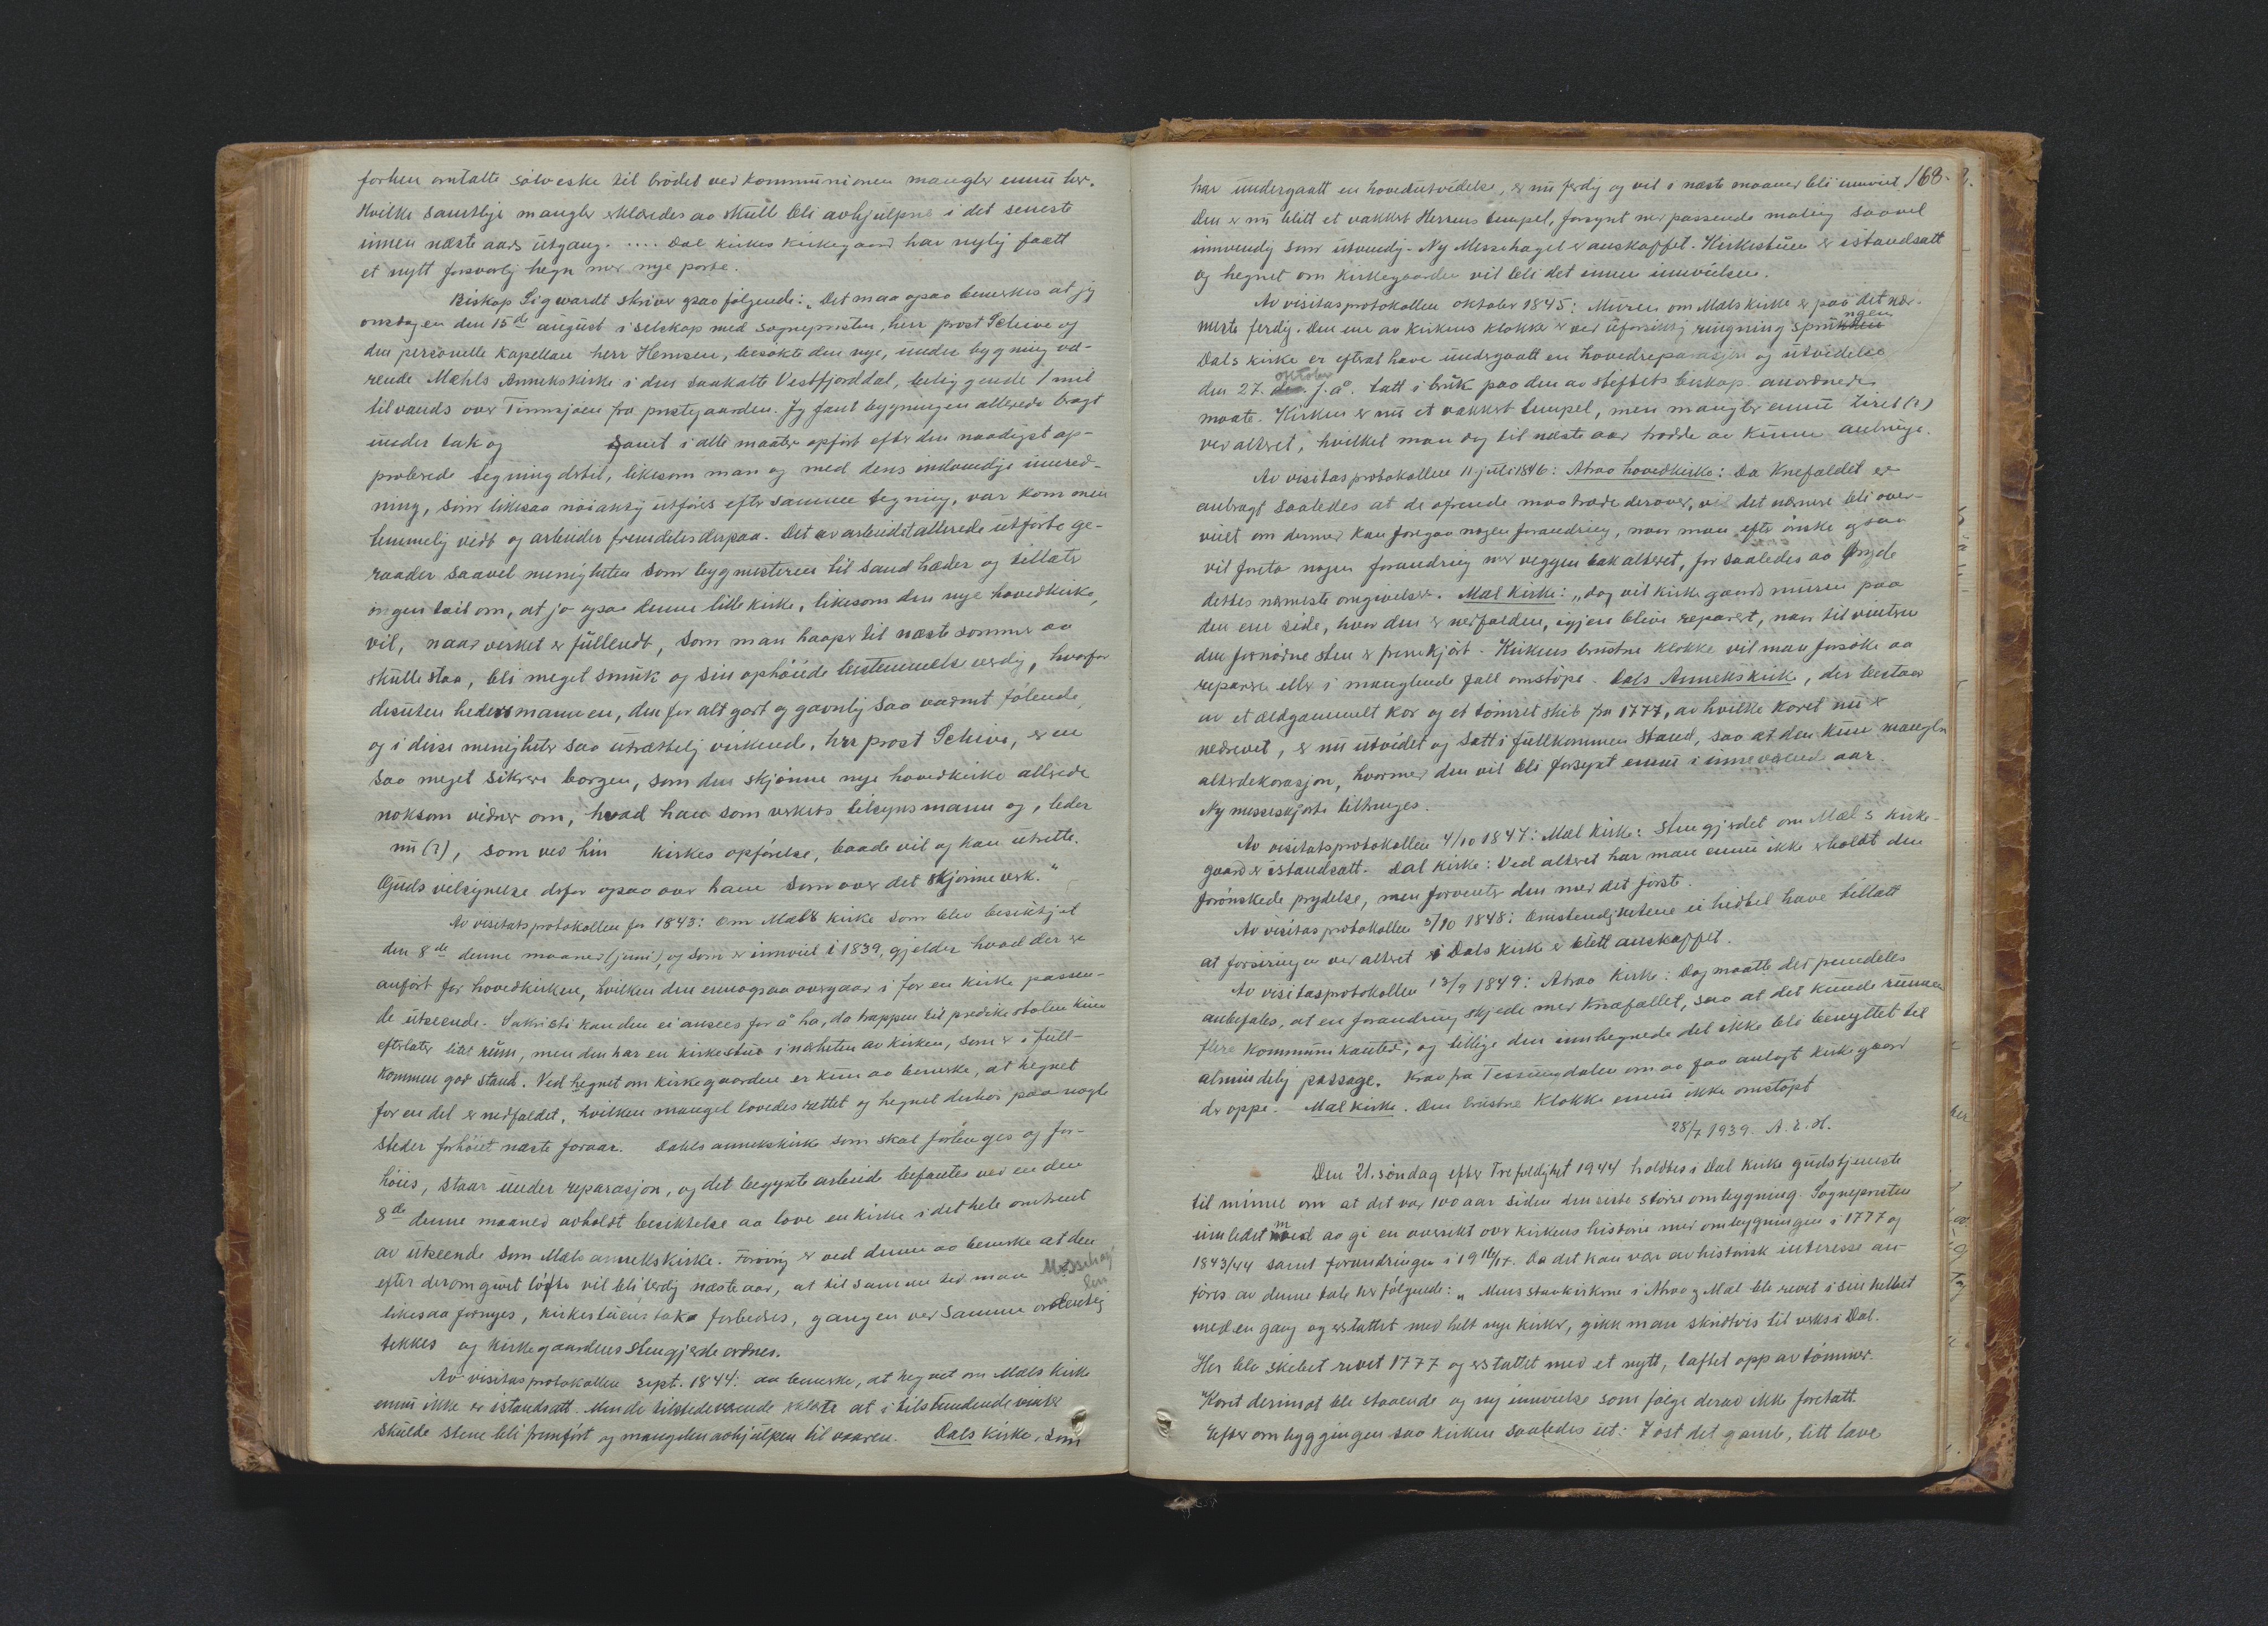 forhen omtalte sølveske til brødet ved kommunionen mangler ennu her.
Hvilke samtlige mangler erklærdes aa skull bli avhjulpne i det seneste
innen næste aars utgang. .... Dal kirkes kirkegaard har nylig faatt
et nytt forsvarlig hegn mer nye porte.
Biskop Sigwardt skriver ogsaa følgende: „Det maa ogsaa bemerkes at jeg
onsdagen den 15de august i selskap med sogneprsten, herr prost Schive og
den personelle kapellan herr Hemsen, besøkte den nye, under bygning væ-
rende Mæhls Annekskirke i den saakalte Vestfjorddal, beliggende 1 mil
tilvands over Tinnsjøen fra prstegaarden. Jeg fant bygningen allerede bragt
under tak og samt i alle maater opført efter den naadigst ap-
proberede tegning dertil, likesom man og med dens indvendige innred-
ning, som likesaa nøiaktig utføres efter samme tegning, var kommen
temmelig vidt og arbeider fremdeles derpaa. Det av arbeidet allerede utførte ge-
raader saavel menigheten som bygmesteren til sand hæder og tillater
ingen tvil om, at jo ogsaa denne lille kirke, likesom den nye hovedkirke,
vil, naar verket er fullendt, som man haaper til næste sommer aa
skulle staa, bli meget smuk og sin ophøiede bestemmelse verdig, hvorfor
desuten hedersmannen, den for alt godt og gavnlig saa varmt følende,
og i disse menigheter saa utrættelig virkende, herr prost Schive, er en
saa meget sikrere borgen, som den skjønne nye hovedkirke allrede
noksom vidner om, hvad han som verkets tilsynsmann og, leder
nu (?), som ved hin kirkes opførelse, baade vil og kan utrette.
Guds velsignelse derfor ogsaa over ham som over det skjønne verk."
Av visitatsprotokollen for 1843: Om Mæls kirke som blev besiktiget
den 8de denne maaned (juni), og som er innviet i 1839, gjelder hvad der er
anført for hovedkirken, hvilken den ennogsaa overgaar i for en kirke passen-
de utseende. Sakristi kan den ei ansees for å ha, da trappen til predikestolen kun
efterlater litet rum, men den har en kirkestue i nærheten av kirken, som er i full-
kommen god stand. Ved hegnet om kirkegaarden er kun aa bemerke, at hegnet
for en del er nedfaldet, hvilken mangel lovedes rettet og hegnet derhos paa nogle
steder forhøiet næste foraar. Dahls annekskirke som skal forlenges og for-
høies, staar under reparasjon, og det begynte arbeide befantes ved en den
8de denne maaned avholdt besiktelse aa love en kirke i det hele omtrent
av utseende som Mæls annekskirke. Forøvrig er ved denne aa bemerke at den
efter derom givet løfte vil bli ferdig næste aar, at til samme tid man Messehag-
len
likesaa fornyes, kirkestuens tak forbedres, gangen ver samme ordentlig
tekkes og kirkegaardens stengjerde ordnes.
Av visitasprotokollen sept. 1844: aa bemerke, at hegnet om Mæls kirke
ennu ikke er istandsatt. Men de tilstedeværende erklærte at i tilstundende vinter
skulde stene bli fremført og mangelen avhjulpen til vaaren. Dals kirke, som
168.
har undergaatt en hovedutvidelse, er nu ferdig og vil i næste maaned bli innviet.
Den er nu blitt et vakkert Herrens tempel, forsynt mer passende maling saavel
innvendig som utvendig. Ny Messehagel er anskaffet. Kirkestuen er istandsatt
og hegnet om kirkegaarden vil bli det innen innvielsen.
Av visitasprotokollen oktober 1845: Muren om Mæls kirke er paa det nær-
meste ferdig. Den ene av kirkens klokker er ved uforsiktig ringning sprukken
ngen
Dals kirke er efterat have undergaatt en hovedreparasjon og utvidelse
den 27. oktober f. å. tatt i bruk paa den av stiftets biskop anordnede
maate. Kirken er nu et vakkert tempel, men mangler ennu ziret (?)
ver altret, hvilket man dog til næste aar trodde aa kunne anbringe.
Av visitasprotokollen 11 juli 1846: Atraa hovedkirke: Da Knefaldet er
anbragt saaledes at de ofrende maa træde derover, vil det nærmere bli over-
viiet om dermed kan foregaa nogen forandring, naar man efter ønske ogsaa
vil foreta nogen forandring ver veggen bak alteret, for saaledes aa pryde
dettes nærmeste omgivelser. Mæl kirke: „dog vil kirkegaardsmuren paa
den ene side, hvor den er nedfalden, igjen blive reparert, naar til vinteren
den fornødne sten er fremkjørt. Kirkens brustne klokke vil man forsøke aa
reparere eller i manglende fall omstøpe. Dals Annekskirke, der bestaar
av et ældgammelt kor og et tømret skib fra 1777, av hvilke koret nu er
nedrevet, er nu utvidet og satt i fullkommen stand, saa at den kun mangler
alterdekorasjon, hvormed den vil bli forsynt ennu i inneværende aar.
Ny messeskjorte tiltrenges.
Av visitatsprotokollen 4/10 1847: Mæl kirke: Stengjerdet om Mæl s kirke-
gaard er istandsatt. Dal kirke: Ved alteret har man ennu ikke erholdt den
forønskede prydelse, men forventer den med det første.
Av visitasprotokollen 3/10 1848: Omstendighetene ei hidtil have tillatt
at forsiringen ver alteret i Dals kirke er blitt anskaffet.
Av visitasprotokollen 13/9 1849: Atraa kirke: Dog maatte det fremdeles
anbefales, at en forandring skjede mer Knæfallet, saa at det kunde rumme
flere kommunikanter, og tillige den innhegnede del ikke bli benyttet til
almindelig passage. Krav fra Tessungdalen om aa faa anlagt kirkegaard
der oppe. Mæl kirke. Den brustne klokke ennu ikke omstøpt
28/7 1939. A. E. H.
Den 21. søndag efter Trefoldighet 1944 holdtes i Dal kirke gudstjeneste
til minne om at det var 100 aar siden den siste større ombygning. Sogneprsten
innledet med aa gi en oversikt over kirkens historie med ombygningen i 1777 og
1843/44 samt forandringen i 1916/17. Da det kan være av historisk interesse an-
føres av denne tale her følgende: „ Mens stavkirkene i Atraa og Mæl ble revet i sin helhet
med en gang og erstattet med helt nye kirker, gikk man skrittvis til verks i Dal.
Her ble skibet revet 1777 og erstattet med et nytt, laftet opp av tømmer.
Koret derimot ble staaende og ny innvielse som følge derav ikke foretatt.
Efter ombyggingen saa kirken saaledes ut: I øst det gamle, litt lave